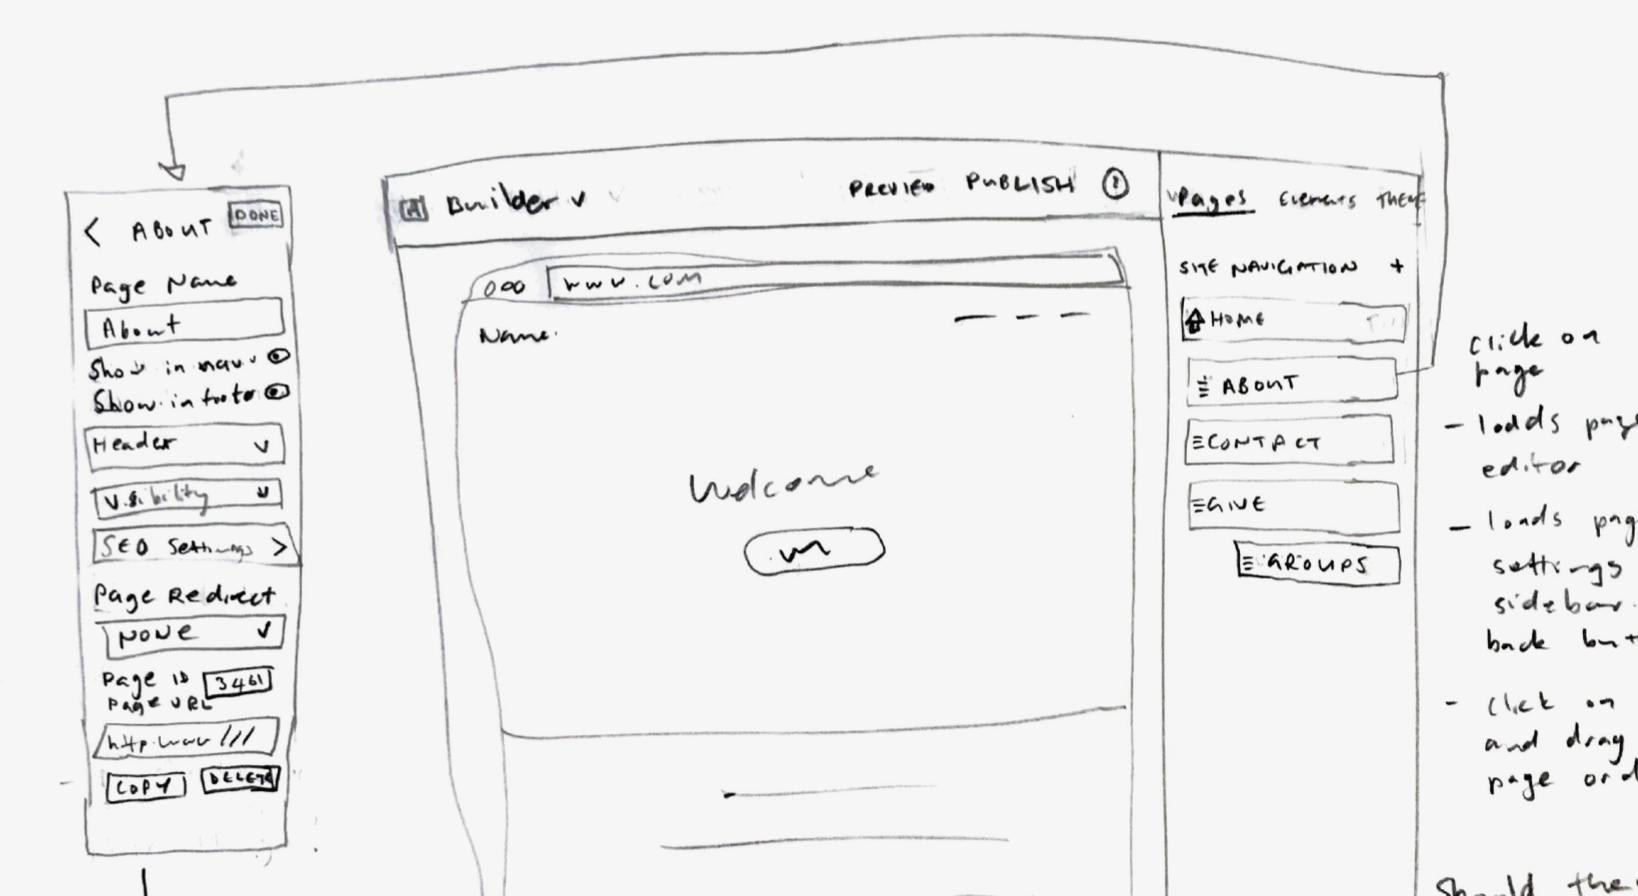 < ABOUT DONE
Page Name
About
Show in nav
Show in footer
Header
Visibility
SEO Settings >
Page Redirect
NONE
Page ID 3461
Page URL
http:www ///
COPY DELETE
Builder PREVIEW PUBLISH
www.com
Name.
Welcome
Pages Elements THEME
SITE NAVIGATION +
HOME
ABOUT
CONTACT
GIVE
GROUPS
click on
page
- loads page
editor
- loads pag
settings
sidebar.
back but
- click on
and drag
page ord
Should the